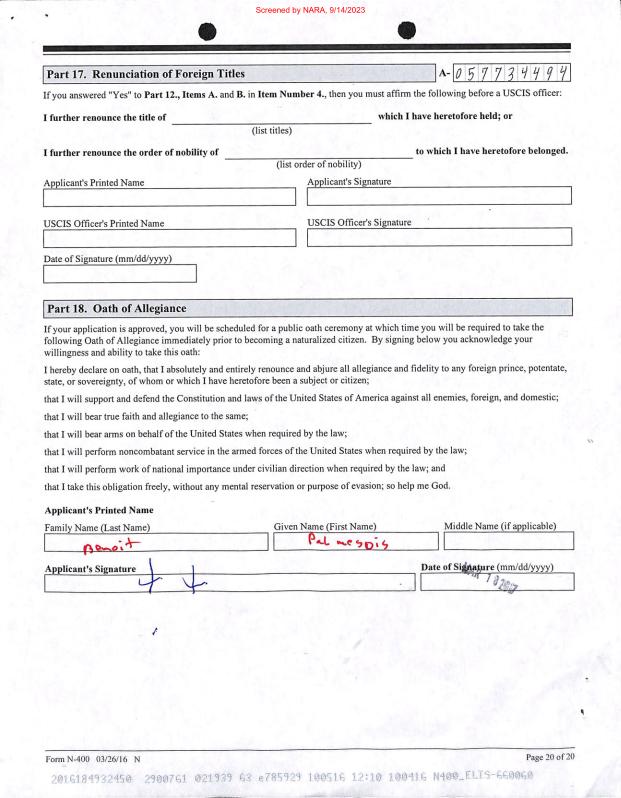 Screened by NARA, 9/14/2023
Part 17. Renunciation of Foreign Titles
A- 057734494
If you answered "Yes" to Part 12., Items A. and B. in Item Number 4., then you must affirm the following before a USCIS officer:
I further renounce the title of which I have heretofore held; or
(list titles)
I further renounce the order of nobility of to which I have heretofore belonged.
(list order of nobility)
Applicant's Printed Name Applicant's Signature
USCIS Officer's Printed Name USCIS Officer's Signature
Date of Signature (mm/dd/yyyy)
Part 18. Oath of Allegiance
If your application is approved, you will be scheduled for a public oath ceremony at which time you will be required to take the
following Oath of Allegiance immediately prior to becoming a naturalized citizen. By signing below you acknowledge your
willingness and ability to take this oath:
I hereby declare on oath, that I absolutely and entirely renounce and abjure all allegiance and fidelity to any foreign prince, potentate,
state, or sovereignty, of whom or which I have heretofore been a subject or citizen;
that I will support and defend the Constitution and laws of the United States of America against all enemies, foreign, and domestic;
that I will bear true faith and allegiance to the same;
that I will bear arms on behalf of the United States when required by the law;
that I will perform noncombatant service in the armed forces of the United States when required by the law;
that I will perform work of national importance under civilian direction when required by the law; and
that I take this obligation freely, without any mental reservation or purpose of evasion; so help me God.
Applicant's Printed Name
Family Name (Last Name) Given Name (First Name) Middle Name (if applicable)
Benoit
Applicant's Signature Date of Signature (mm/dd/yyyy)
MAR 10 2017
Form N-400 03/26/16 N Page 20 of 20
2016184932450 2900761 021939 63 e785929 100516 12:10 100416 N400_ELIS-660060